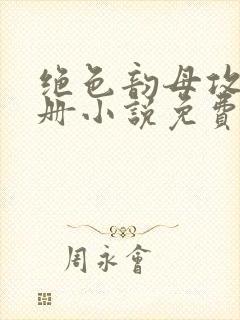 绝色韵母攻
册小説免費
周永會